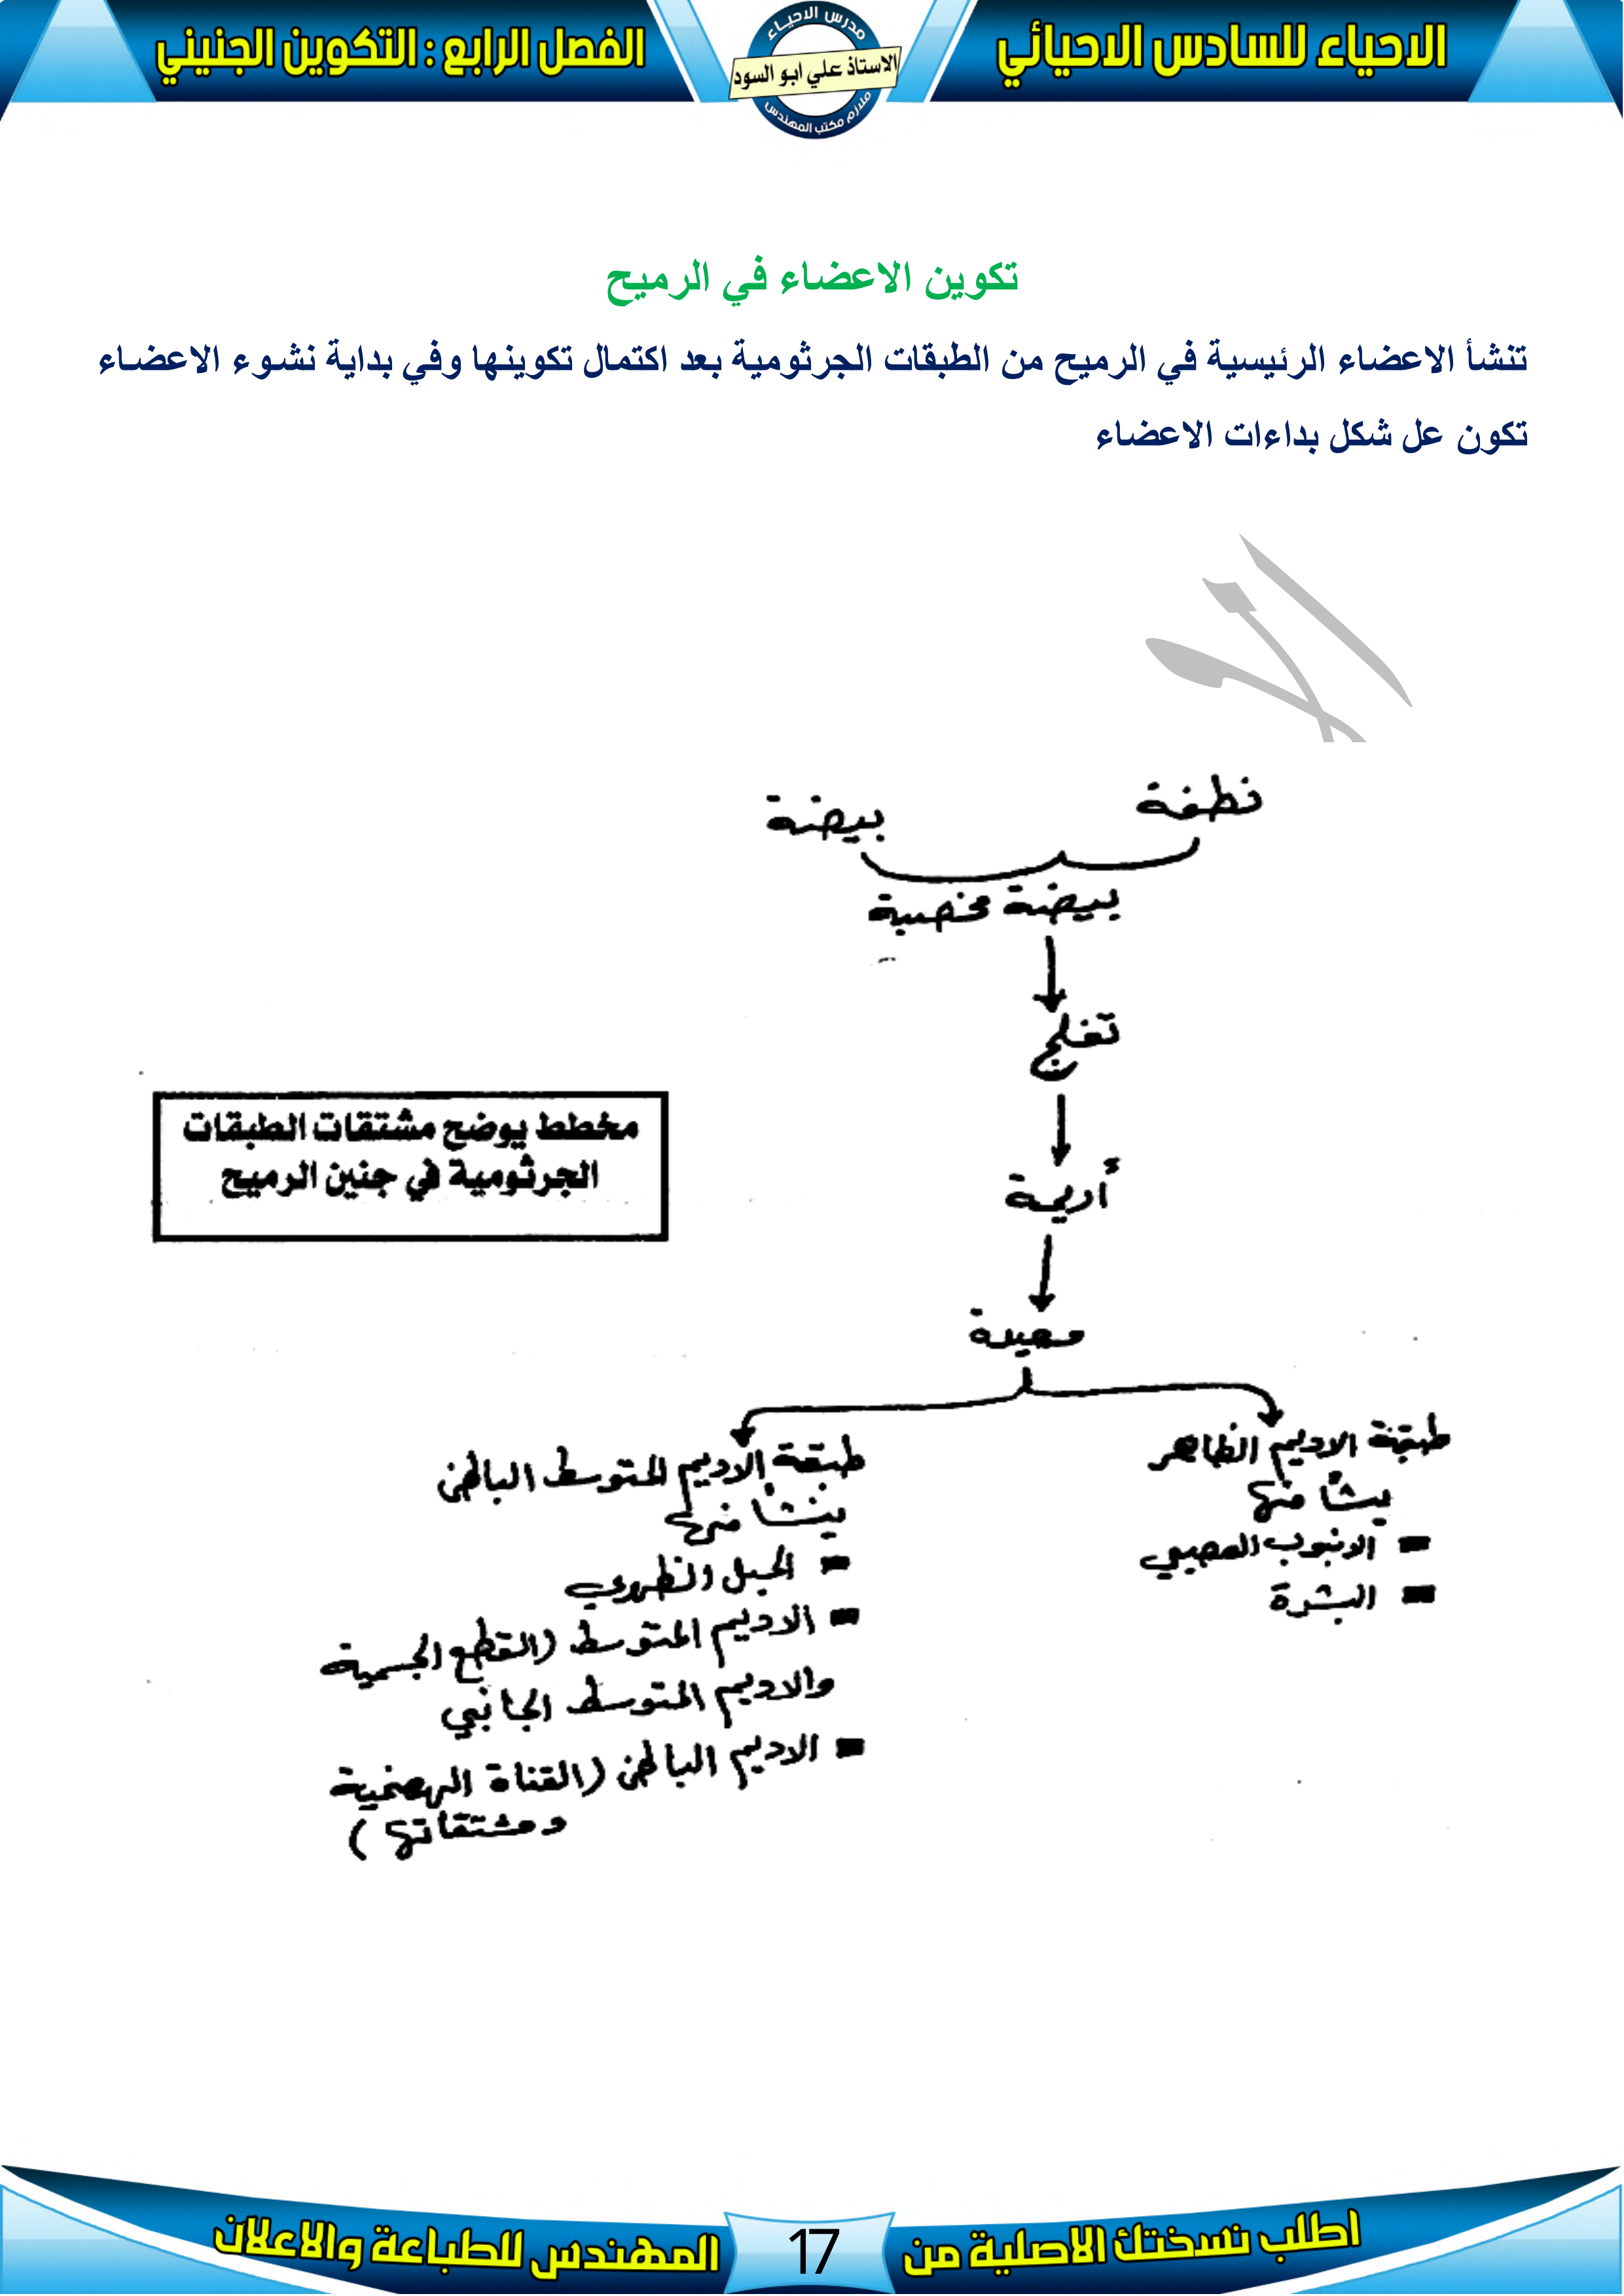 الاحياء للسادس الاحيائي
مدرس الاحياء
الاستاذ علي ابو السود
ملازم مكتب المهندس
الفصل الرابع : التكوين الجنيني
تكوين الاعضاء في الرميح
تنشأ الاعضاء الرئيسية في الرميح من الطبقات الجرثومية بعد اكتمال تكوينها وفي بداية نشوء الاعضاء
تكون عل شكل بداءات الاعضاء
نطفة
بيضة
بيضة مخصبة
تفلج
أريمة
معيدة
مخطط يوضح مشتقات الطبقات
الجرثومية في جنين الرميح
طبقة الاديم الظاهر
ينشأ منها
▪ الانبوب العصبي
▪ البشرة
طبقة الاديم المتوسط الباطن
ينشأ منها
▪ الحبل الظهري
▪ الاديم المتوسط (القطع الجسمية
والاديم المتوسط الجانبي
▪ الاديم الباطن (القناة الهضمية
ومشتقاتها)
اطلب نسختك الاصلية من
17
المهندس للطباعة والاعلان